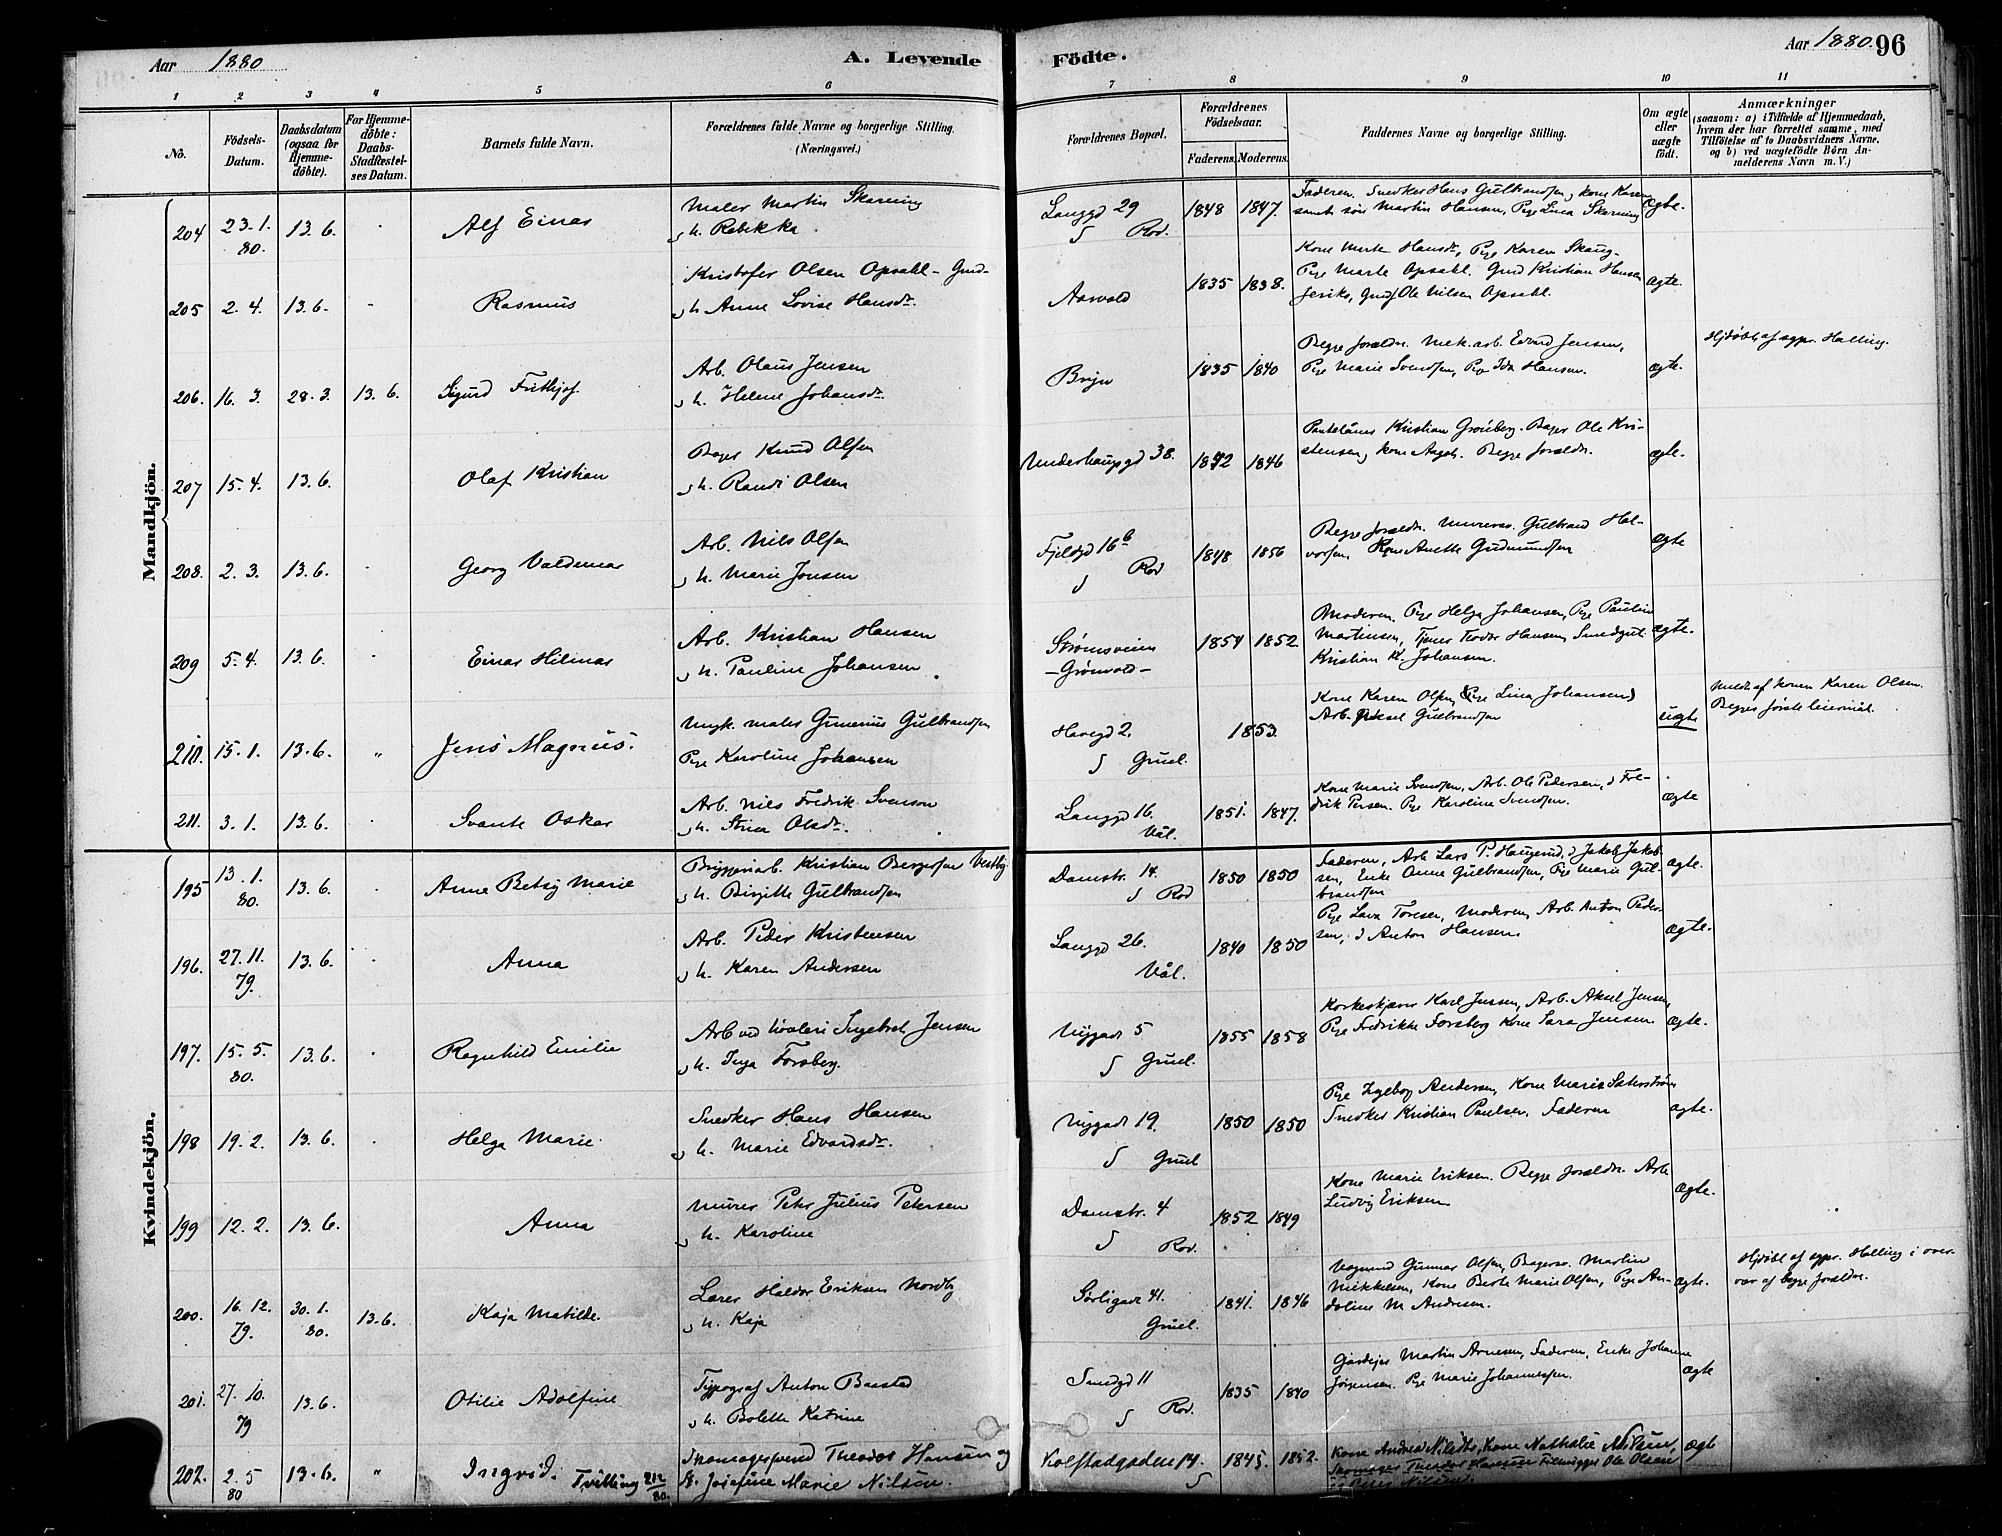 Aar 1880
A. Levende Födte.
Aar 1880. 96
1 2 3 4 5 6 7 8 9 10 11
No.
Födsels-Datum.
Daabsdatum (ogsaa for Hjemme-döbte).
For Hjemme-döbte: Daabs-Stadfæstel-ses Datum.
Barnets fulde Navn.
Forældrenes fulde Navne og borgerlige Stilling. (Næringsvei.)
Forældrenes Bopæl.
Forældrenes Födselsaar.
Faderens. Moderens.
Faddernes Navne og borgerlige Stilling.
Om ægte eller uægte födt.
Anmærkninger
(saasom: a) i Tilfælde af Hjemmedaab, hvem der har forrettet samme, med Tilföielse af to Daabsvidners Navne, og b) ved uægtefödte Börn An-melderens Navn m. V.)
Mandkjön.
204 23.1. 80. 13.6. Alf Einar
Maler Martin Skarning
h. Rebekka
Langgd 29 Rod. 1848 1847.
Faderen. Snedker Hans Gulbrandsen, kone Karen
samt søn Martin Hansen, Pige Lina Skarning ægte.
205 2.4. 13.6. Rasmus
Kristofer Olsen Opsahl - Gmd-
h. Anne Lovise Hansdr.
Aasvold 1835 1838.
Kone Marte Hansdr, Pige Karen Skaug-
Pige Marte Opsahl. Gmd Kristian Hansen
Ole Nilsen Opsahl. ægte.
206. 16.3. 28.3. 13.6. Sigurd Frithjof.
Arb. Olaus Jensen
h. Helene Johansdr.
Bryn 1835 1840
Begge foreldr. Mek. arb. Edvard Jensen,
Pige Marie Svendsen, Pige Ida Hansen. ægte.
Hjdøbt af sgpr. Halling.
207 15.4. 13.6. Olaf Kristian
Bager Knud Olsen
h. Randi Olsen
Underhaugsgd 38. 1842 1846
Kristian Grønberg. Bager Ole Kri-
stensen, kone Begge foreldr. ægte.
208. 2.3. 13.6. Georg Valdemar
Arb. Nils Olsen
h. Marie Jonsen
Fjeldgd 16 b Rod 1848 1856
Begge foreldr. Murersv. Gulbrand Hal-
vorsen, Anette Gudmundsen ægte
209 5.4. 13.6. Einar Hilmar
Arb. Kristian Hansen
h. Pauline Johansen
Strømsveien
-Grønvold- 1854 1852.
Moderen. Pige Helga Johansen, Pige Pauline
Martinsen, Tjener Teodor Hansen, Smedgut
Kristian K. Johansen. ægte.
210. 15.1. 13.6. " Jens Magnus.
Ungk. maler Gunerius Gulbrandsen
Pige Karoline Johansen
Havegd 2. Gruel. 1853.
Kone Karen Olsen, Pige Lina Johansen,
Arb. Aksel Gulbrandsen uægte
Meldt af konen Karen Olsen.
Begges første leiermaal.
211. 3.1. 13.6. Svante Oskar
Arb. Nils Fredrik Svenson
h. Stina Olsdr.
Langgd 16. Vål. 1851. 1847.
Kone Marie Svendsen, Arb. Ole Pedersen, d Fre-
drik Persen. Pige Karoline Svendsen. ægte
Kvindekjön.
195 13.1. 80. 13.6. Anne Betsy Marie
Bryggeriarb. Kristian Bergersen Vestby
h. Birgitte Gulbrandsen
Damstr. 14. Rod 1850 1850
Faderen, Arb Lars P. Haugerud, d Jakob Jakob-
sen, Enke Anne Gulbrandsen, Pige Marie Gul-
brandsen ægte.
196. 27.11. 79. 13.6. Anna
Arb. Peder Kristensen
h. Karen Andersen
Langgd 26. Vål. 1840 1850
Pige Lava Toresen, Moderen, Arb. Anton Peder-
sen, d Anton Hansen ægte.
197. 15.5. 80. 13.6. Ragnhild Emilie
Arb ved Ingebret Jensen
h. Inga Forsberg.
Nygade 5 Gruel. 1855 1858
Korkeskjærer Karl Jensen, Arb. Aksel Jensen,
Pige Fredrikke Forsberg Kone Sara Jensen ægte.
198 19.2. 13.6. Helga Marie.
Snedker Hans Hansen
h. Marie Edvardsdr.
Nygade 19. Gruel 1850 1850
Pige Ingeborg Andersen, Kone Maria Säterström
Snedker Kristian Paulsen, Faderen ægte.
199 12.2. 13.6. Anna
Murer Peter Julius Petersen
h. Karoline
Damstr. 4 Rod. 1852 1849
Kone Marie Eriksen. Begge foreldr. Arb
Ludvig Eriksen ægte.
200. 16.12. 79. 30.1. 80. 13.6. Kaja Matilde.
Lærer Haldor Eriksen Nordby
h. Kaja
Sørligade 41. Gruel. 1841. 1846
Vognmd Gunnar Olsen, Bagersv. Martin
Mikkelsen, Kone Berte Marie Olsen, Pige An-
doline M Andersen. ægte.
Hjdøbt af sgpr. Halling i over-
vær af begge foreldre.
201. 27.10. 79 13.6. Otilie Adolfine
Typograf Anton Baastad
h. Bolette Katrine
Smedgd 11 Rod. 1835 1840
Gårdejer Martin Arnesen, Faderen, Enke Johanne
Jørgensen. Pige Marie Johannessen. ægte
202. 2.5 80 13.6. " Ingrid. Tvilling 212/80.
Skomagersvend Theodor Hansen og
H. Josefine Marie Nilsen.
Kolstadgaden 14. 1845. 1852.
Kone Andrea, Kone Nathalie Nilsen,
Skomager Theodor Hansen Ole Olsen
Nilsen. ægt